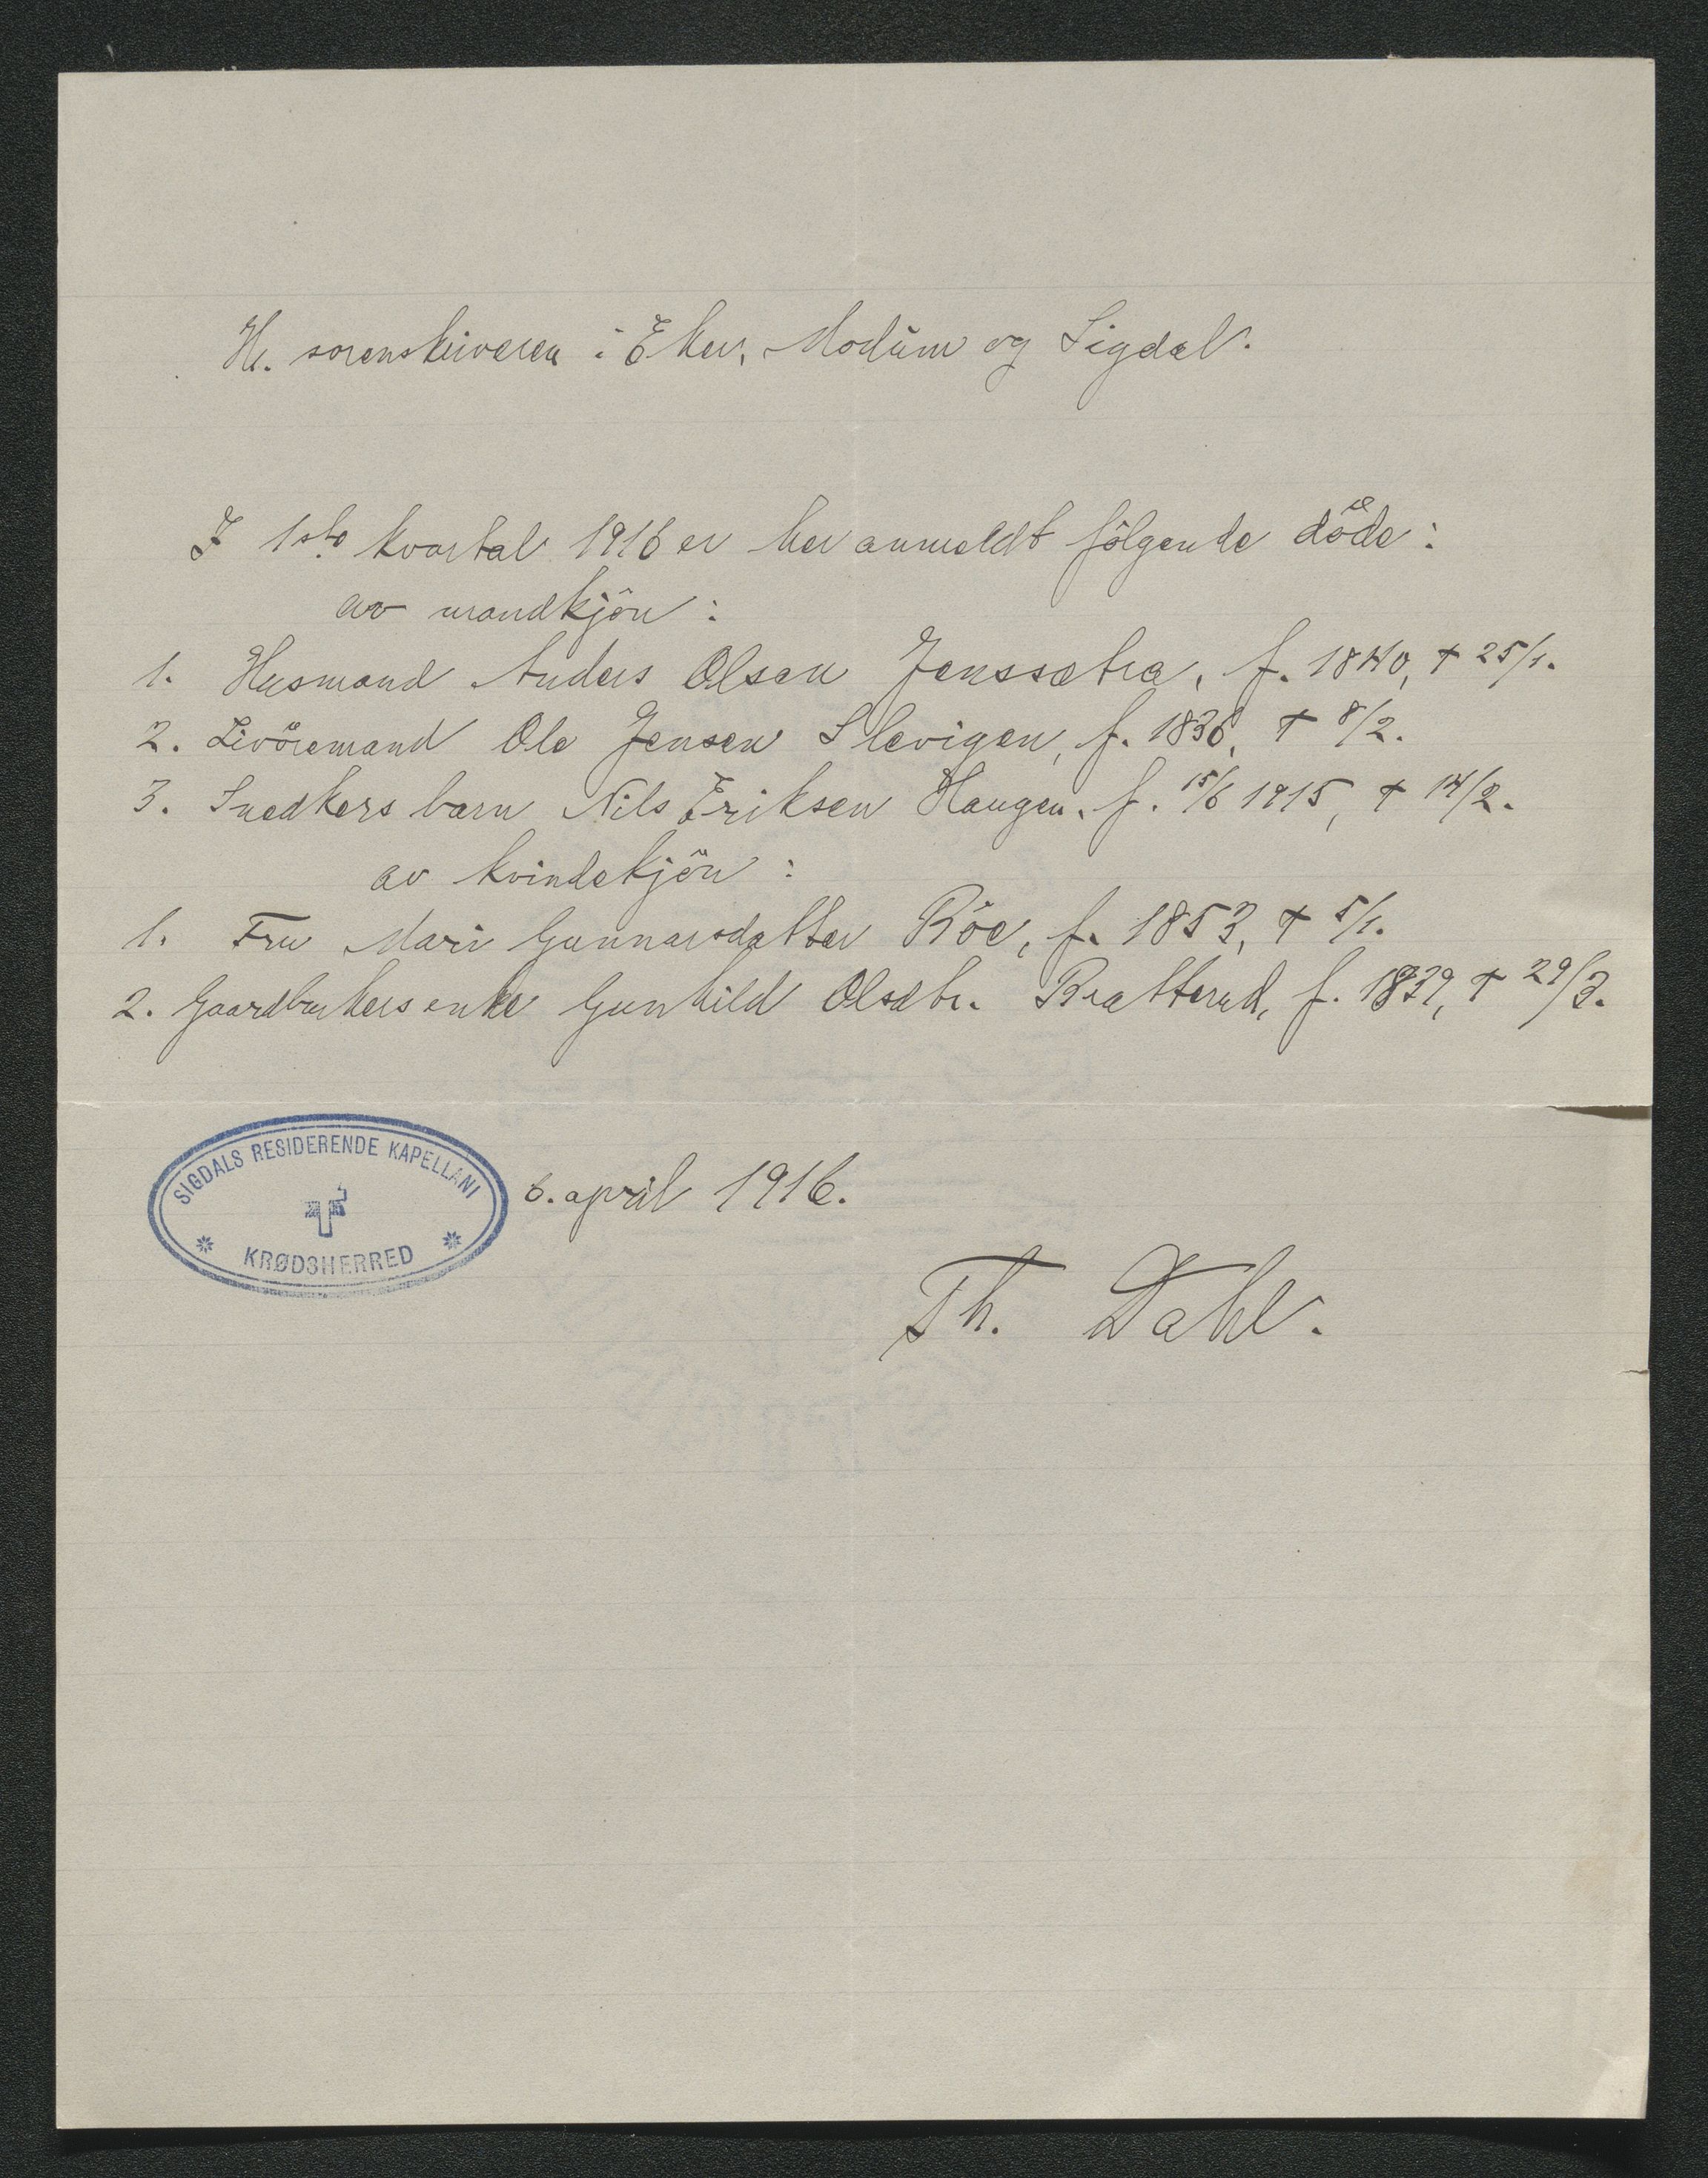 Hr. sorenskriveren i Eker, Modum og Sigdal.
I 1ste kvartal 1916 er her anmeldt følgende døde:
av mandkjön:
1. Husmand Anders Olsen Jenssætra, f. 1840, † 25/1.
2. Livöremand Ole Jensen Slevigen, f. 1836, † 8/2.
3. Snedkers barn Nils Eriksen Haugen, f. 15/6 1915, † 14/2.
av kvindekjön:
1. Fru Mari Gunnarsdatter Röe, f. 1853, † 5/1.
2. Gaardbrukers enke Gunhild Olsdtr. Bratterud, f. 1839, † 29/3.
SIGDALS RESIDERENDE KAPELLANI
KRØDSHERRED
6. april 1916.
Th. Dahl.